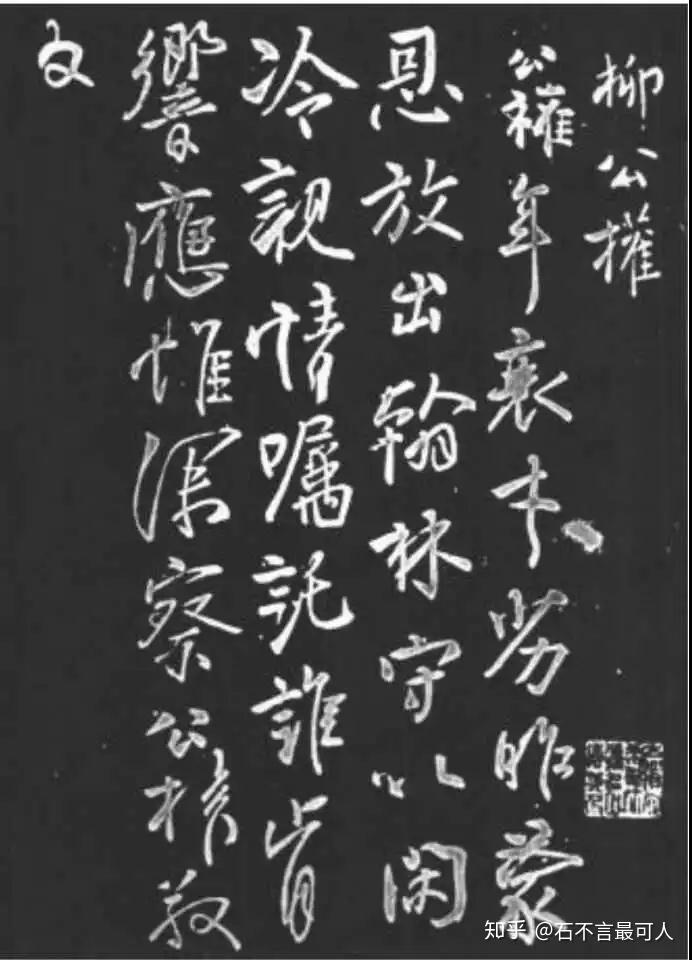 柳公權
公權年衰才劣昨蒙
恩放出翰林守以閑
冷親情囑託誰肯
響應惟深察公權敬
白
知乎 @石不言最可人